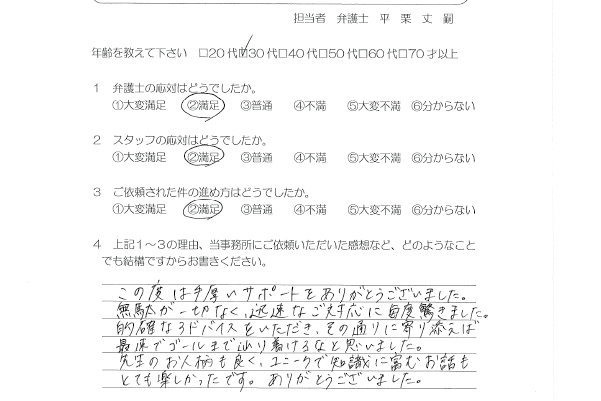 担当者 弁護士 平 栗 丈 嗣
年齢を教えて下さい □20代□30代□40代□50代□60代□70才以上
1 弁護士の応対はどうでしたか。
①大変満足 ②満足 ③普通 ④不満 ⑤大変不満 ⑥分からない
2 スタッフの応対はどうでしたか。
①大変満足 ②満足 ③普通 ④不満 ⑤大変不満 ⑥分からない
3 ご依頼された件の進め方はどうでしたか。
①大変満足 ②満足 ③普通 ④不満 ⑤大変不満 ⑥分からない
4 上記1～3の理由、当事務所にご依頼いただいた感想など、どのようなこと
でも結構ですからお書きください。
この度は手厚いサポートをありがとうございました。
無駄が一切なく、迅速なご対応に毎度驚きました。
的確なアドバイスをいただき、その通りに寄り添えば
最速でゴールまで辿り着けるなと思いました。
先生のお人柄も良く、ユニークで知識に富むお話も
とても楽しかったです。ありがとうございました。